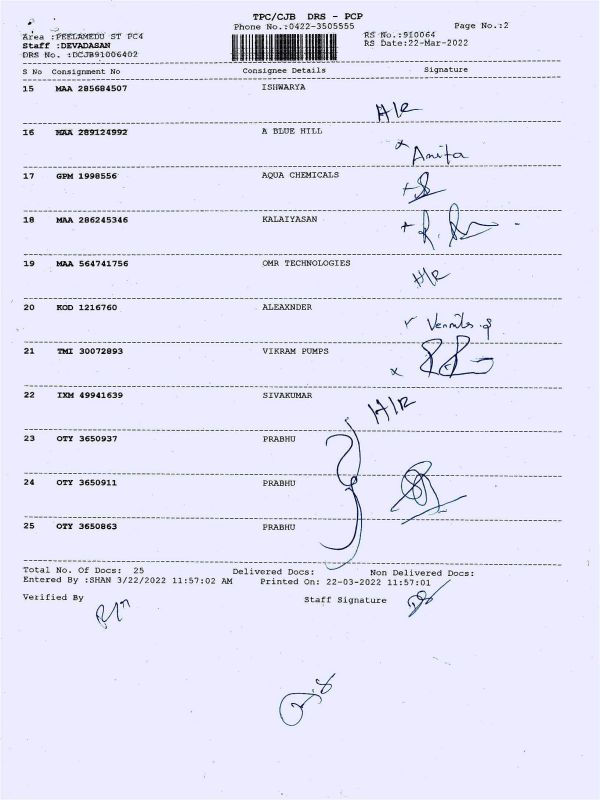 TPC/CJB DRS - PCP
Phone No.:0422-3505555 Page No.:2
Area :PEELAMEDU ST PC4 RS No.:910064
Staff :DEVADASAN RS Date:22-Mar-2022
DRS No. :DCJB91006402
S No Consignment No Consignee Details Signature
15 MAA 285684507 ISHWARYA
H/R
16 MAA 289124992 A BLUE HILL
x Anita
17 GPM 1998556 AQUA CHEMICALS
18 MAA 286245346 KALAIYASAN
19 MAA 564741756 OMR TECHNOLOGIES
H/R
20 KOD 1216760 ALEAXNDER
21 TMI 30072893 VIKRAM PUMPS
x
22 IXM 49941639 SIVAKUMAR
H/R
23 OTY 3650937 PRABHU
24 OTY 3650911 PRABHU
25 OTY 3650863 PRABHU
Total No. Of Docs: 25 Delivered Docs: Non Delivered Docs:
Entered By :SHAN 3/22/2022 11:57:02 AM Printed On: 22-03-2022 11:57:01
Verified By Staff Signature